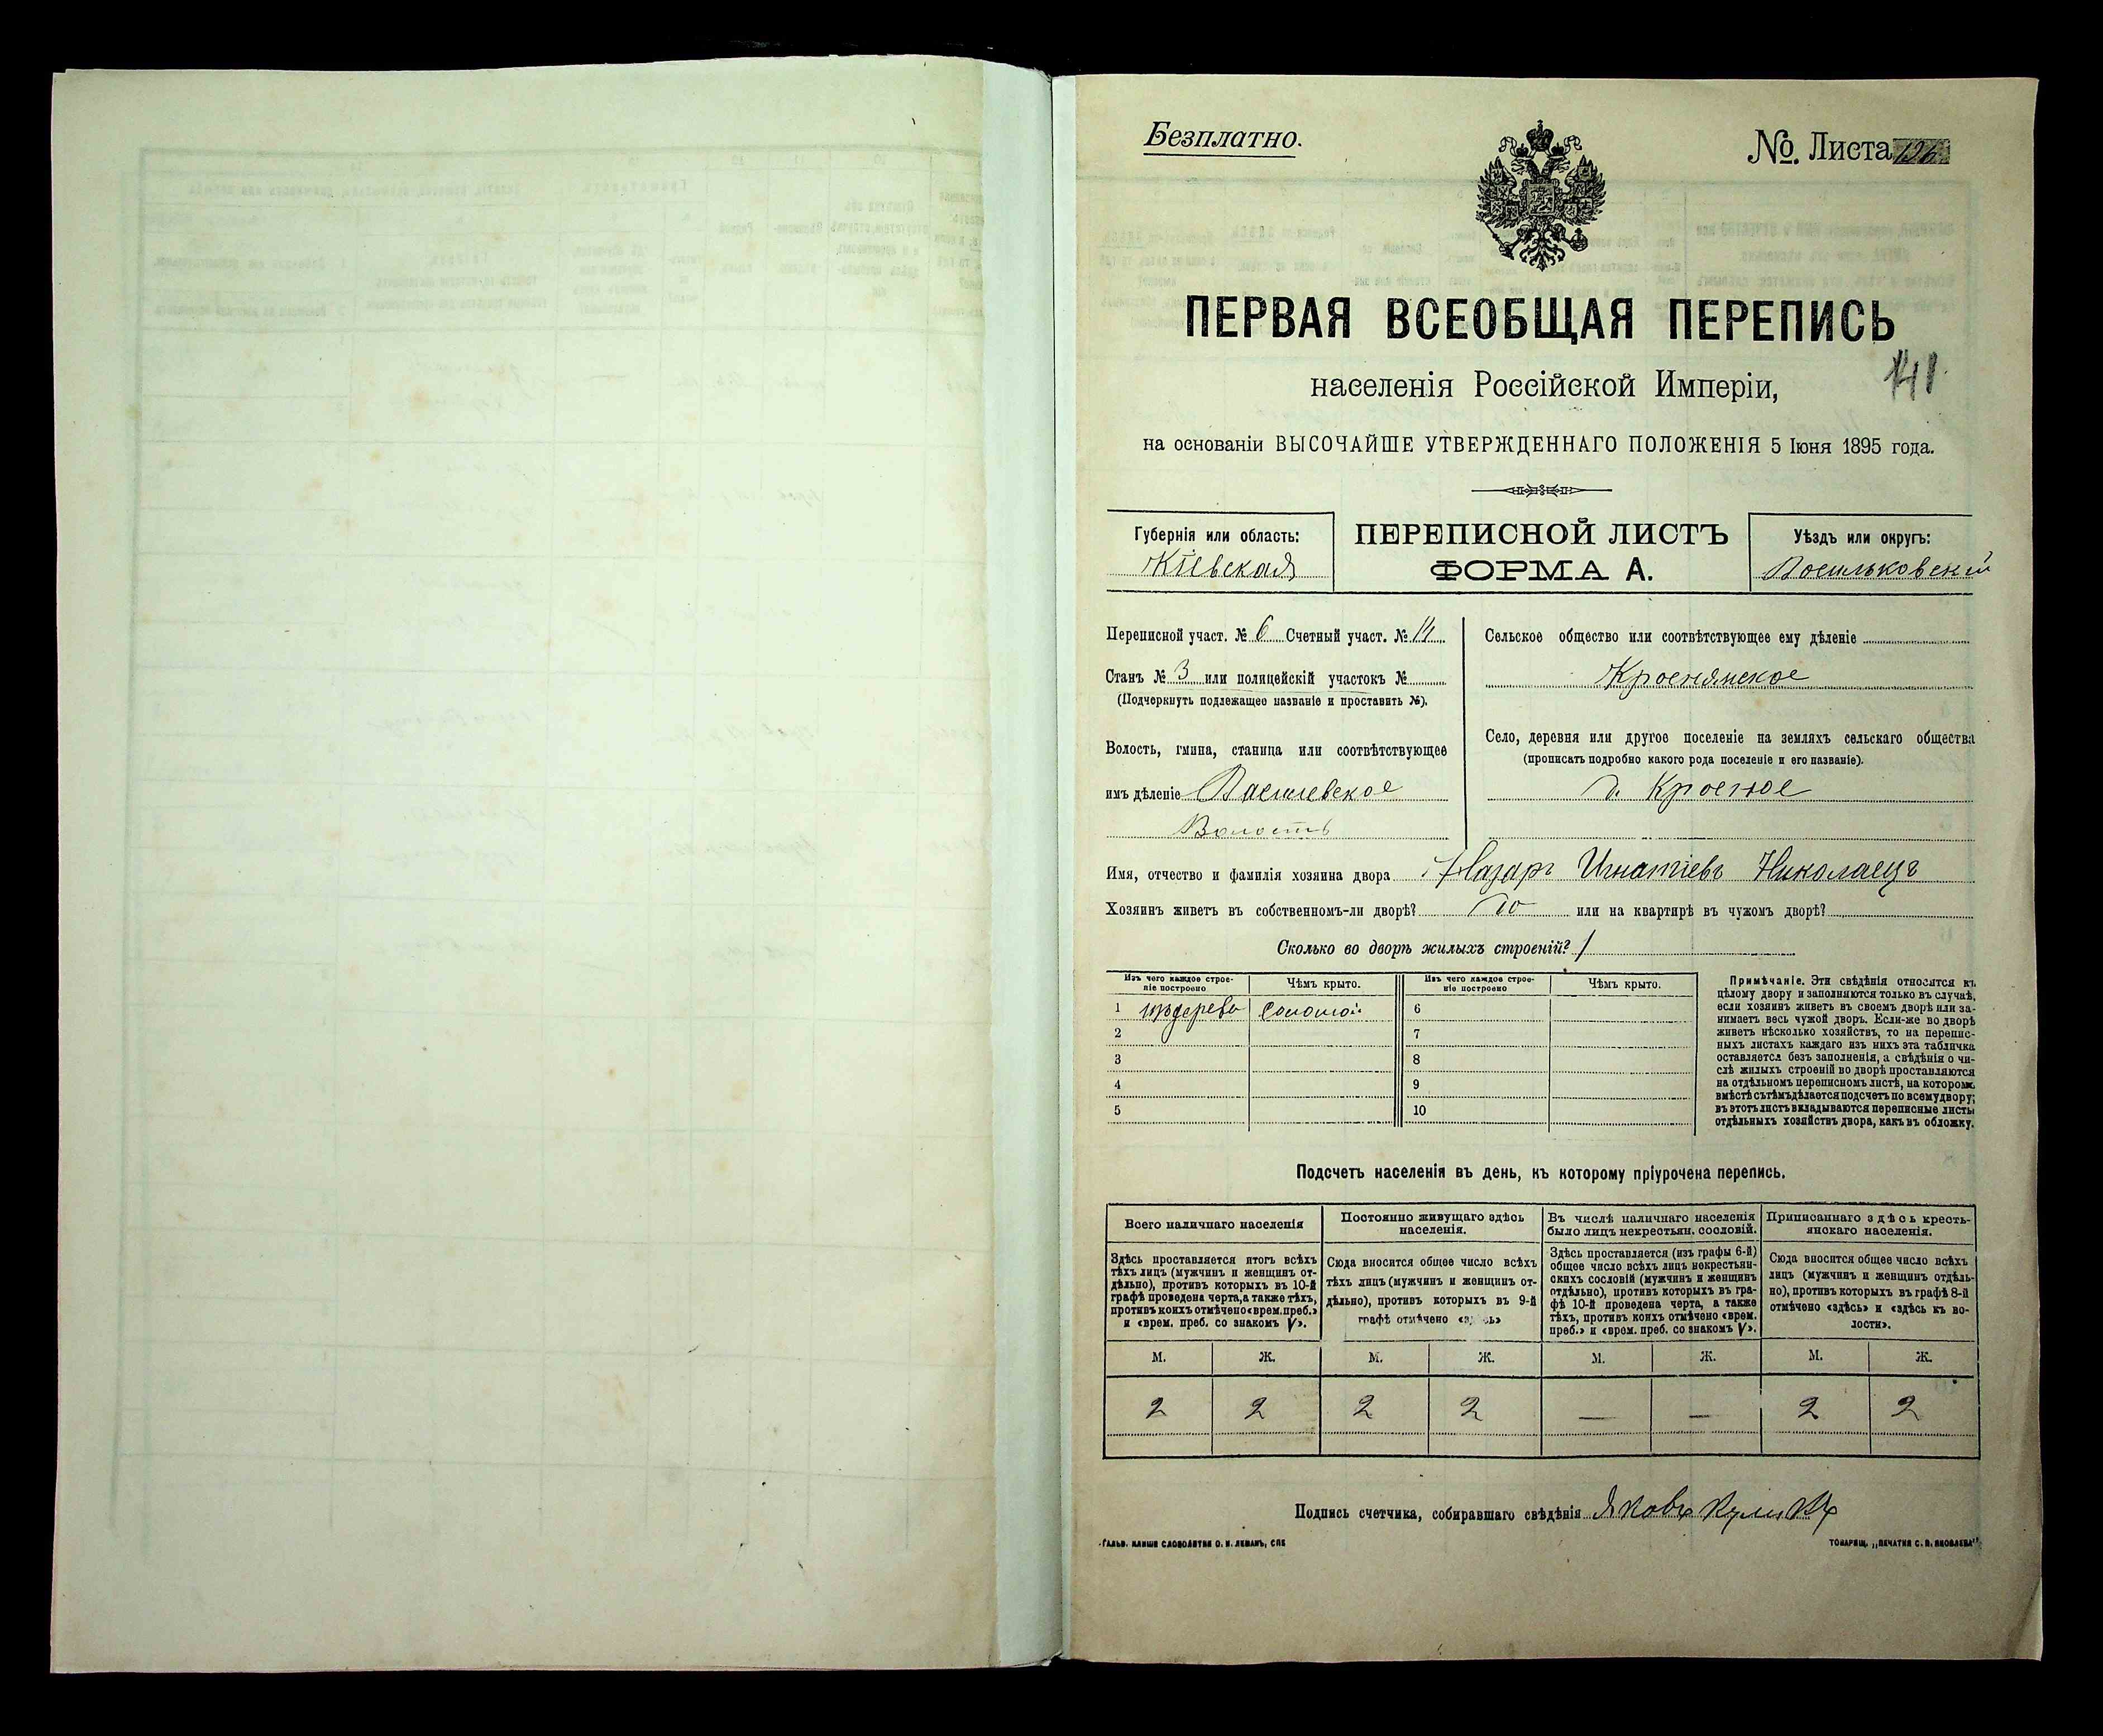 Безплатно.
№ Листа 126
ПЕРВАЯ ВСЕОБЩАЯ ПЕРЕПИСЬ
населенія Россійской Имперіи,
141
на основаніи ВЫСОЧАЙШЕ УТВЕРЖДЕННАГО ПОЛОЖЕНІЯ 5 Іюня 1895 года.
Губернія или область:
Кіевская
ПЕРЕПИСНОЙ ЛИСТЪ
ФОРМА А.
Уѣздъ или округъ:
Васильковскій
Переписной участ. № 6 Счетный участ. № 14
Станъ № 3 или полицейскій участокъ №
(Подчеркнуть подлежащее названіе и проставить №).
Волость, гмина, станица или соотвѣтствующее
имъ дѣленіе Васиlевское
Волость
Сельское общество или соотвѣтствующее ему дѣленіе
Краснянское
Село, деревня или другое поселеніе на земляхъ сельскаго общества
(прописать подробно какого рода поселеніе и его названіе).
д. Красное
Имя, отчество и фамилія хозяина двора Назаръ Игнатіевъ Николаецъ
Хозяинъ живетъ въ собственномъ-ли дворѣ? да или на квартирѣ въ чужомъ дворѣ?
Сколько во дворѣ жилыхъ строеній? 1
Изъ чего каждое строе-
ніе построено
Чѣмъ крыто.
Изъ чего каждое строе-
ніе построено
Чѣмъ крыто.
1 изъ дерева Соломой 6
2 7
3 8
4 9
5 10
Примѣчаніе. Эти свѣдѣнія относятся къ
цѣлому двору и заполняются только въ случаѣ,
если хозяинъ живетъ въ своемъ дворѣ или за-
нимаетъ весь чужой дворъ. Если-же во дворѣ
живетъ нѣсколько хозяйствъ, то на перепис-
ныхъ листахъ каждаго изъ нихъ эта табличка
оставляется безъ заполненія, а свѣдѣнія о чи-
слѣ жилыхъ строеній во дворѣ проставляются
на отдѣльномъ переписномъ листѣ, на которомъ
вмѣстѣ съ тѣмъ дѣлается подсчетъ по всему двору;
въ этотъ листъ вкладываются переписные листы
отдѣльныхъ хозяйствъ двора, какъ въ обложку.
Подсчетъ населенія въ день, къ которому пріурочена перепись.
Всего наличнаго населенія
Здѣсь проставляется итогъ всѣхъ
тѣхъ лицъ (мужчинъ и женщинъ от-
дѣльно), противъ которыхъ въ 10-й
графѣ проведена черта, а также тѣхъ,
противъ коихъ отмѣчено «врем. преб.»
и «врем. преб. со знакомъ V».
Постоянно живущаго здѣсь
населенія.
Сюда вносится общее число всѣхъ
тѣхъ лицъ (мужчинъ и женщинъ от-
дѣльно), противъ которыхъ въ 9-й
графѣ отмѣчено «здѣсь»
Въ числѣ наличнаго населенія
было лицъ некрестьян. сословій.
Здѣсь проставляется (изъ графы 6-й)
общее число всѣхъ лицъ некрестьян-
скихъ сословій (мужчинъ и женщинъ
отдѣльно), противъ которыхъ въ гра-
фѣ 10-й проведена черта, а также
тѣхъ, противъ коихъ отмѣчено «врем.
преб.» и «врем. преб. со знакомъ V».
Приписаннаго здѣсь кресть-
янскаго населенія.
Сюда вносится общее число всѣхъ
лицъ (мужчинъ и женщинъ отдѣль-
но), противъ которыхъ въ графѣ 8-й
отмѣчено «здѣсь» и «здѣсь къ во-
лости».
М. Ж. М. Ж. М. Ж. М. Ж.
2 2 2 2 — — 2 2
Подпись счетчика, собиравшаго свѣдѣнія Яковъ Куликъ
ГАЛЬВ. КЛИШЕ СЛОВОЛИТНИ О. И. ЛЕМАНЪ, СПБ
ТОВАРИЩ. „ПЕЧАТНЯ С. П. ЯКОВЛЕВА"